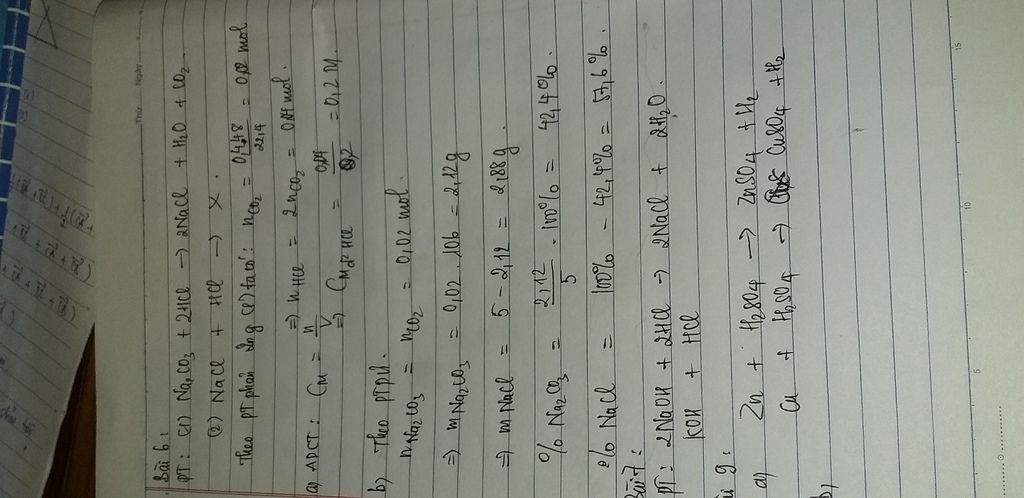 Thứ Ngày
Bài 6:
PT: (1) Na2CO3 + 2HCl → 2NaCl + H2O + CO2
(2) NaCl + HCl → X.
Theo PT phản ứng (1) ta có: nCO2 = 0,448/22,4 = 0,02 mol
⇒ nHCl = 2nCO2 = 0,04 mol.
a) ADCT: CM = n/V ⇒ CM d2 HCl = 0,04/0,2 = 0,2 M.
b) Theo PTPU.
nNa2CO3 = nCO2 = 0,02 mol.
⇒ mNa2CO3 = 0,02 . 106 = 2,12g
⇒ mNaCl = 5 - 2,12 = 2,88g.
% Na2CO3 = 2,12/5 . 100% = 42,4%.
% NaCl = 100% - 42,4% = 57,6%.
Bài 7:
PT: 2NaOH + 2HCl → 2NaCl + 2H2O.
KOH + HCl
ài 9:
a) Zn + H2SO4 → ZnSO4 + H2
Cu + H2SO4 → CuSO4 + H2
b)
5 10 15